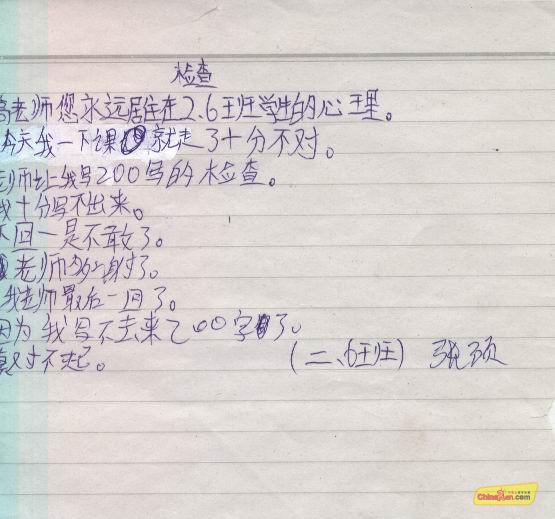 检查
高老师您永远居住在2.6班学生的心理。
今天我一下课就走了十分不对。
老师让我写200写的检查。
我十分写不出来。
下回一是不敢了。
老师多谢了。
我老师最后一回了。
因为我写不去来200字了。
真对不起。
(二、6班) 张颈
ChinaRen.com